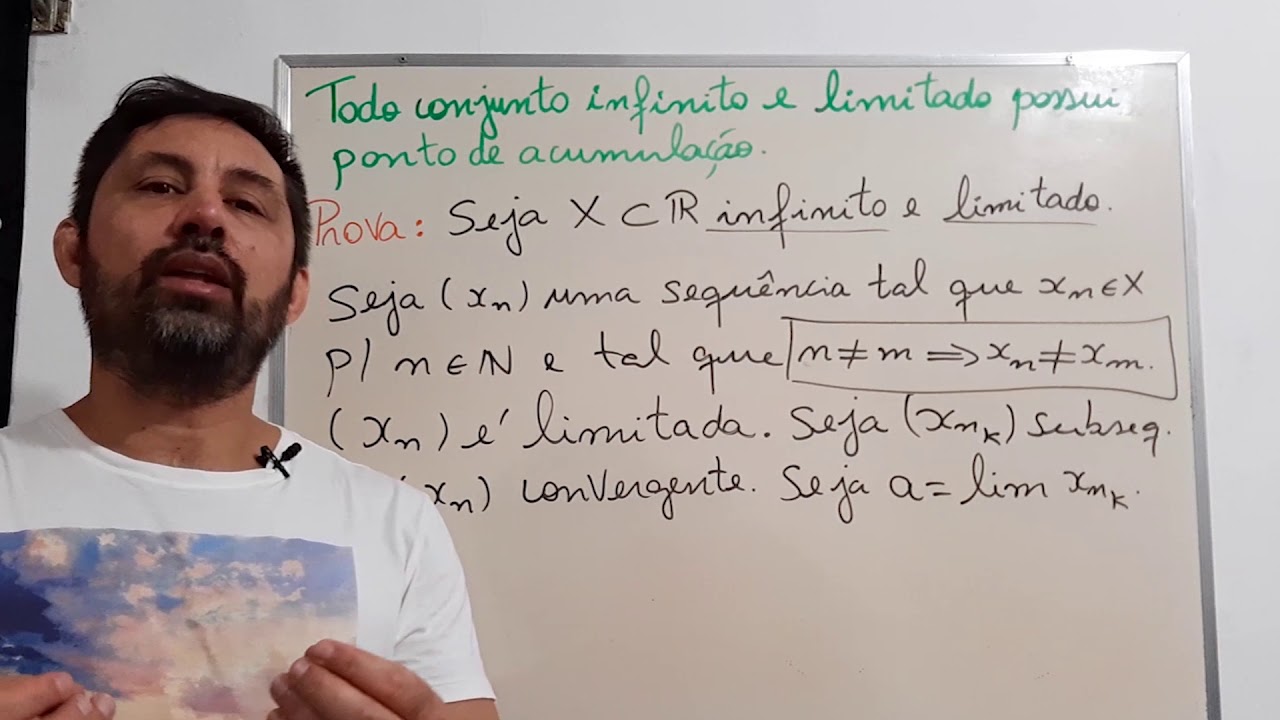 Todo conjunto infinito e limitado possui
ponto de acumulação.
Prova: Seja X ⊂ ℝ infinito e limitado.
Seja (xₙ) uma sequência tal que xₙ ∈ X
p/ n ∈ N e tal que n ≠ m ⟹ xₙ ≠ xₘ.
(xₙ) é limitada. Seja (xₙₖ) subseq.
xₙ) convergente. Seja a = lim xₙₖ.